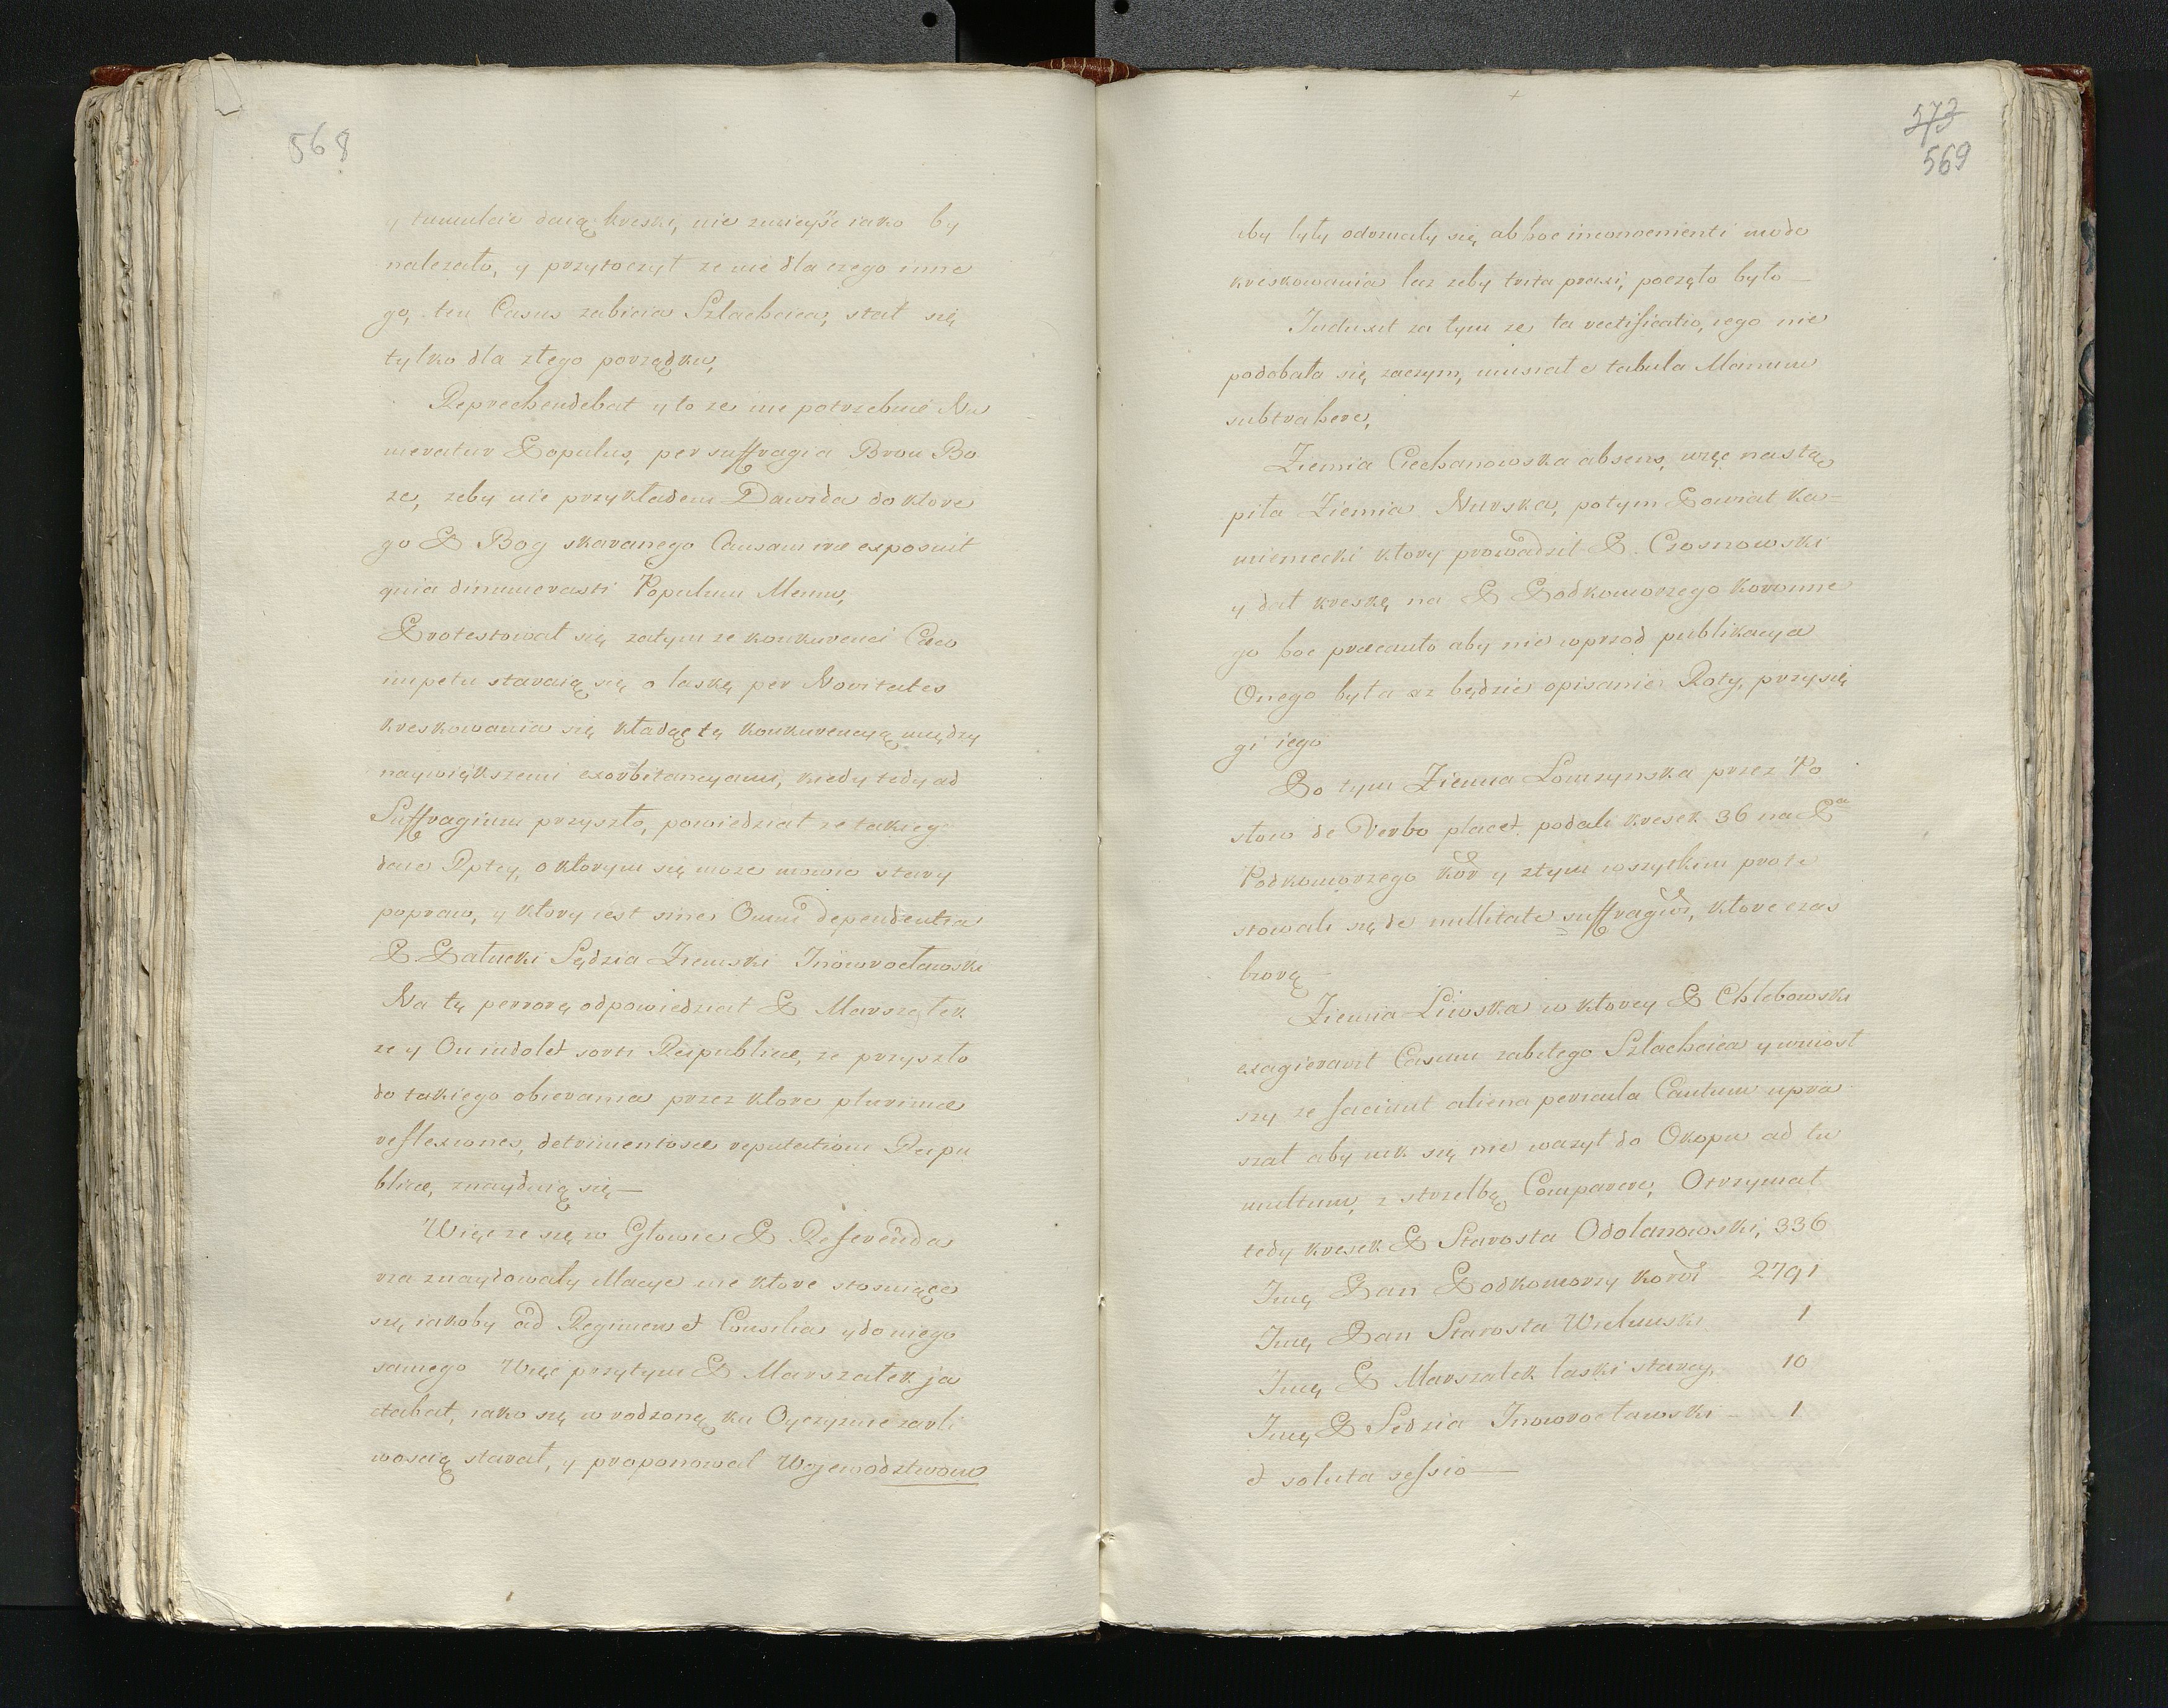 568
y tumulcie daią kreski, nie zwięyśc iako by
nalezało, y przytoczył ze nie dla czego inne
go, ten Casus zabicia Szlachcica, stał się
tylko dla złego porządku,
Reprechendebat y to ze nie potrzebnie Nu
meratur Populus, per suffragia Bron Bo
ze, zeby nie przykładem Dawida do ktore
go P Bog skaranego Causam iræ exposuit
quia dinumerasti Populum Meum,
Protestował się zatym ze konkurenci Cæco
impetu staraią się o laskę per Novitates
kreskowania się kładąc tę konkurencyą między
naywiększemi exorbitancyami, kiedy tedy ad
Suffragium przyszło, powiedział ze takiego
daie Rptey, o ktorym się moze mowic stary
popraw, y ktory iest sine Omni dependentia
P. Załucki Sędzia Ziemski Inowrocławski
Na tę perorę odpowiedział P Marszałek
ze y On indolet sorti Reipublicæ, ze przyszło
do takiego obierania przez ktore plurimæ
reflexiones, detrimentosæ reputationi Reipu
blicæ, znayduią się —
Więc ze się w Głowie P Referenda
rza znaydowały Macye nie ktore stosuiące
się iakoby ad Regimen et Consilia y do niego
samego Więc przytym P Marszałek ja
ctabat, iako się wrodzoną ku Oyczyznie zarli
woscią starał, y proponował Woiewodztwom
573
569
aby były odezwały się ab hoc inconvenienti modo
kreskowania lez zeby trita praxi, poczęto było —
Induxit za tym ze ta rectificatio, iego nie
podobała się zaczym, musiał e tabula Manum
subtrahere,
Ziemia Ciechanowska absens, więc nastą
piła Ziemia Nurska, potym Powiat Ka=
mieniecki ktory prowadził P. Czosnowski
y dał kreskę na P Podkomorzego koronne
go hoc præcauto aby nie wprzod publikacya
Onego była az będzie opisanie Roty, przysię
gi iego
Po tym Ziemia Łomzynska przez Po
słow de Verbo placet. podali kresek 36 na Pa
Podkomorzego Kor y ztym wszytkim prote
stowali się de nullitate suffragior, ktore czas
biorą —
Ziemia Liwska w ktorey P Chlebowski
exagieravit Casum zabitego Szlachcica y wniost
szy ze faciunt aliena pericula Cautum upra
szał aby nik się nie wazył do Okopu ad tu
multum, z strzelbą Comparere, Otrzymał
tedy kresek P Starosta Odolanowski, 336
Imę Pan Podkomorzy koron 2791
Imę Pan Starosta Wieluński 1
Imę P Marszałek laski starey, 10
Imę P Sedzia Inowrocławski — 1
et soluta sessio —